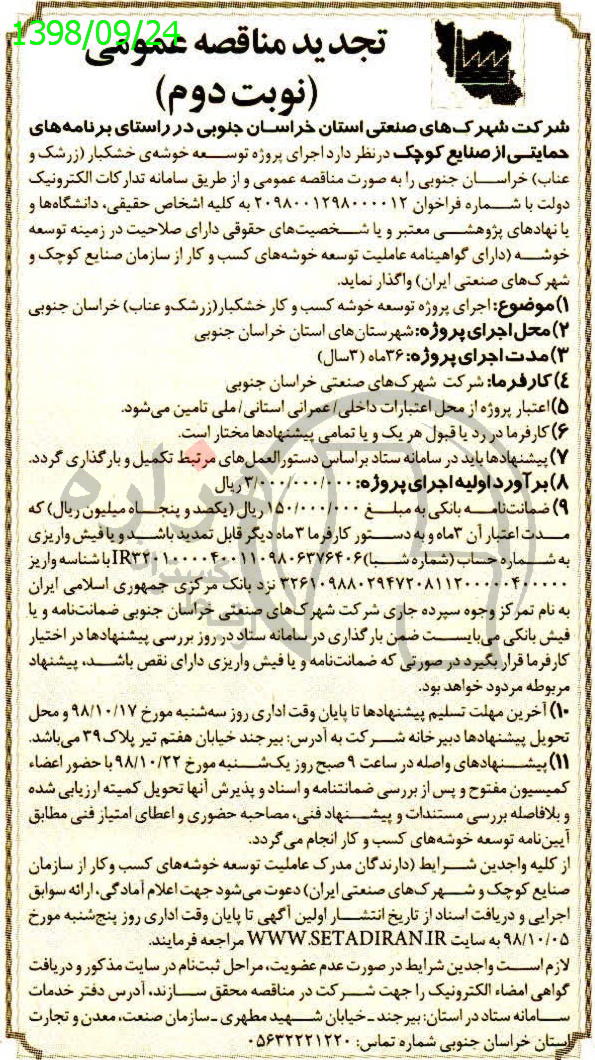 1398/09/24
تجدید مناقصه عمومی
(نوبت دوم)
شرکت شهرک‌های صنعتی استان خراسان جنوبی در راستای برنامه‌های
حمایتی از صنایع کوچک درنظر دارد اجرای پروژه توسعه خوشه‌ی خشکبار (زرشک و
عناب) خراسان جنوبی را به صورت مناقصه عمومی و از طریق سامانه تدارکات الکترونیک
دولت با شماره فراخوان ۲۰۹۸۰۰۱۲۹۸۰۰۰۰۱۲ به کلیه اشخاص حقیقی، دانشگاه‌ها و
یا نهادهای پژوهشی معتبر و یا شخصیت‌های حقوقی دارای صلاحیت در زمینه توسعه
خوشه (دارای گواهینامه عاملیت توسعه خوشه‌های کسب و کار از سازمان صنایع کوچک و
شهرک‌های صنعتی ایران) واگذار نماید.
۱)موضوع: اجرای پروژه توسعه خوشه کسب و کار خشکبار(زرشک و عناب) خراسان جنوبی
۲)محل اجرای پروژه: شهرستان‌های استان خراسان جنوبی
۳)مدت اجرای پروژه: ۳۶ماه (۳سال)
۴)کارفرما: شرکت شهرک‌های صنعتی خراسان جنوبی
۵)اعتبار پروژه از محل اعتبارات داخلی/عمرانی استانی/ملی تامین می‌شود.
۶)کارفرما در رد یا قبول هر یک و یا تمامی پیشنهادها مختار است.
۷)پیشنهادها باید در سامانه ستاد براساس دستورالعمل‌های مرتبط تکمیل و بارگذاری گردد.
۸)برآورد اولیه اجرای پروژه: ۳/۰۰۰/۰۰۰/۰۰۰ ریال
۹) ضمانتنامه بانکی به مبلغ ۱۵۰/۰۰۰/۰۰۰ ریال (یکصد و پنجاه میلیون ریال) که
مدت اعتبار آن ۳ماه و به دستور کارفرما ۳ماه دیگر قابل تمدید باشد و یا فیش واریزی
به شماره حساب (شماره شبا) IR۳۲۰۱۰۰۰۰۴۰۰۱۱۰۹۸۰۶۳۷۶۴۰۶ با شناسه واریز
۳۲۶۱۰۹۸۸۰۲۹۴۷۲۰۸۱۱۲۰۰۰۰۰۴۰۰۰۰۰ نزد بانک مرکزی جمهوری اسلامی ایران
به نام تمرکز وجوه سپرده جاری شرکت شهرک‌های صنعتی خراسان جنوبی ضمانت‌نامه و یا
فیش بانکی می‌بایست ضمن بارگذاری در سامانه ستاد در روز بررسی پیشنهادها در اختیار
کارفرما قرار بگیرد در صورتی که ضمانت‌نامه و یا فیش واریزی دارای نقص باشد، پیشنهاد
مربوطه مردود خواهد بود.
۱۰) آخرین مهلت تسلیم پیشنهادها تا پایان وقت اداری روز سه‌شنبه مورخ ۹۸/۱۰/۱۷ و محل
تحویل پیشنهادها دبیرخانه شرکت به آدرس: بیرجند خیابان هفتم تیر پلاک ۳۹ می‌باشد.
۱۱) پیشنهادهای واصله در ساعت ۹ صبح روز یکشنبه مورخ ۹۸/۱۰/۲۲ با حضور اعضاء
کمیسیون مفتوح و پس از بررسی ضمانتنامه و اسناد و پذیرش آنها تحویل کمیته ارزیابی شده
و بلافاصله بررسی مستندات و پیشنهاد فنی، مصاحبه حضوری و اعطای امتیاز فنی مطابق
آیین‌نامه توسعه خوشه‌های کسب و کار انجام می‌گردد.
از کلیه واجدین شرایط (دارندگان مدرک عاملیت توسعه خوشه‌های کسب وکار از سازمان
صنایع کوچک و شهرک‌های صنعتی ایران) دعوت می‌شود جهت اعلام آمادگی، ارائه سوابق
اجرایی و دریافت اسناد از تاریخ انتشار اولین آگهی تا پایان وقت اداری روز پنج‌شنبه مورخ
۹۸/۱۰/۰۵ به سایت WWW.SETADIRAN.IR مراجعه فرمایند.
لازم است واجدین شرایط در صورت عدم عضویت، مراحل ثبت‌نام در سایت مذکور و دریافت
گواهی امضاء الکترونیک را جهت شرکت در مناقصه محقق سازند، آدرس دفتر خدمات
سامانه ستاد در استان: بیرجند -خیابان شهید مطهری -سازمان صنعت، معدن و تجارت
استان خراسان جنوبی شماره تماس: ۰۵۶۳۲۲۲۱۲۲۰